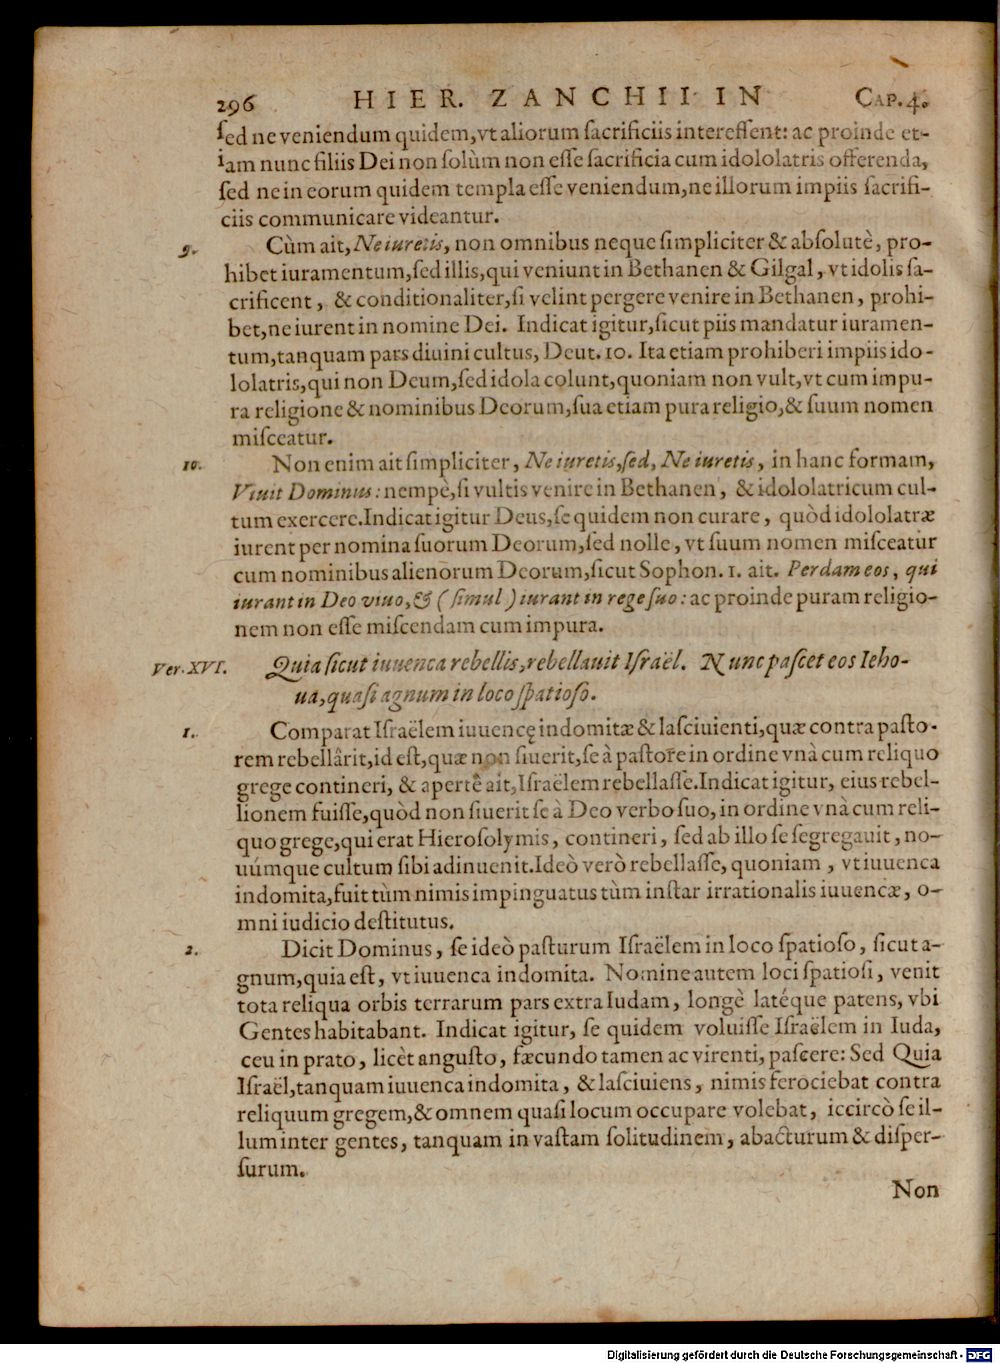 296 HIER. ZANCHII IN CAP. 4.
ſed ne veniendum quidem, vt aliorum ſacrificiis intereſſent: ac proinde et-
iam nunc filiis Dei non ſolùm non eſſe ſacrificia cum idololatris offerenda,
ſed ne in eorum quidem templa eſſe veniendum, ne illorum impiis ſacrifi-
ciis communicare videantur.
9. Cùm ait, Ne iuretis, non omnibus neque ſimpliciter & abſolutè, pro-
hibet iuramentum, ſed illis, qui veniunt in Bethanen & Gilgal, vt idolis ſa-
crificent, & conditionaliter, ſi velint pergere venire in Bethanen, prohi-
bet, ne iurent in nomine Dei. Indicat igitur, ſicut piis mandatur iuramen-
tum, tanquam pars diuini cultus, Deut. 10. Ita etiam prohiberi impiis ido-
lolatris, qui non Deum, ſed idola colunt, quoniam non vult, vt cum impu-
ra religione & nominibus Deorum, ſua etiam pura religio, & ſuum nomen
miſceatur.
10. Non enim ait ſimpliciter, Ne iuretis, ſed, Ne iuretis, in hanc formam,
Viuit Dominus: nempè, ſi vultis venire in Bethanen, & idololatricum cul-
tum exercere. Indicat igitur Deus, ſe quidem non curare, quòd idololatræ
iurent per nomina ſuorum Deorum, ſed nolle, vt ſuum nomen miſceatur
cum nominibus alienorum Deorum, ſicut Sophon. 1. ait. Perdam eos, qui
iurant in Deo viuo, & (ſimul) iurant in rege ſuo: ac proinde puram religio-
nem non eſſe miſcendam cum impura.
Ver. XVI. Quia ſicut iuuenca rebellis, rebellauit Iſraël. Nunc paſcet eos Ieho-
ua, quaſi agnum in loco ſpatioſo.
1. Comparat Iſraëlem iuuencę indomitæ & laſciuienti, quæ contra paſto-
rem rebellârit, id eſt, quæ non ſiuerit, ſe à paſtore in ordine vnà cum reliquo
grege contineri, & apertê ait, Iſraëlem rebellaſſe. Indicat igitur, eius rebel-
lionem fuiſſe, quòd non ſiuerit ſe à Deo verbo ſuo, in ordine vnà cum reli-
quo grege, qui erat Hieroſolymis, contineri, ſed ab illo ſe ſegregauit, no-
uúmque cultum ſibi adinuenit. Ideò verò rebellaſſe, quoniam, vt iuuenca
indomita, fuit tùm nimis impinguatus tùm inſtar irrationalis iuuencæ, o-
mni iudicio deſtitutus.
2. Dicit Dominus, ſe ideò paſturum Iſraëlem in loco ſpatioſo, ſicut a-
gnum, quia eſt, vt iuuenca indomita. Nomine autem loci ſpatioſi, venit
tota reliqua orbis terrarum pars extra Iudam, longè latéque patens, vbi
Gentes habitabant. Indicat igitur, ſe quidem voluiſſe Iſraëlem in Iuda,
ceu in prato, licèt anguſto, fæcundo tamen ac virenti, paſcere: Sed Quia
Iſraël, tanquam iuuenca indomita, & laſciuiens, nimis ferociebat contra
reliquum gregem, & omnem quaſi locum occupare volebat, iccircò ſe il-
lum inter gentes, tanquam in vaſtam ſolitudinem, abacturum & diſper-
ſurum.
Non
Digitalisierung gefördert durch die Deutsche Forschungsgemeinschaft - DFG